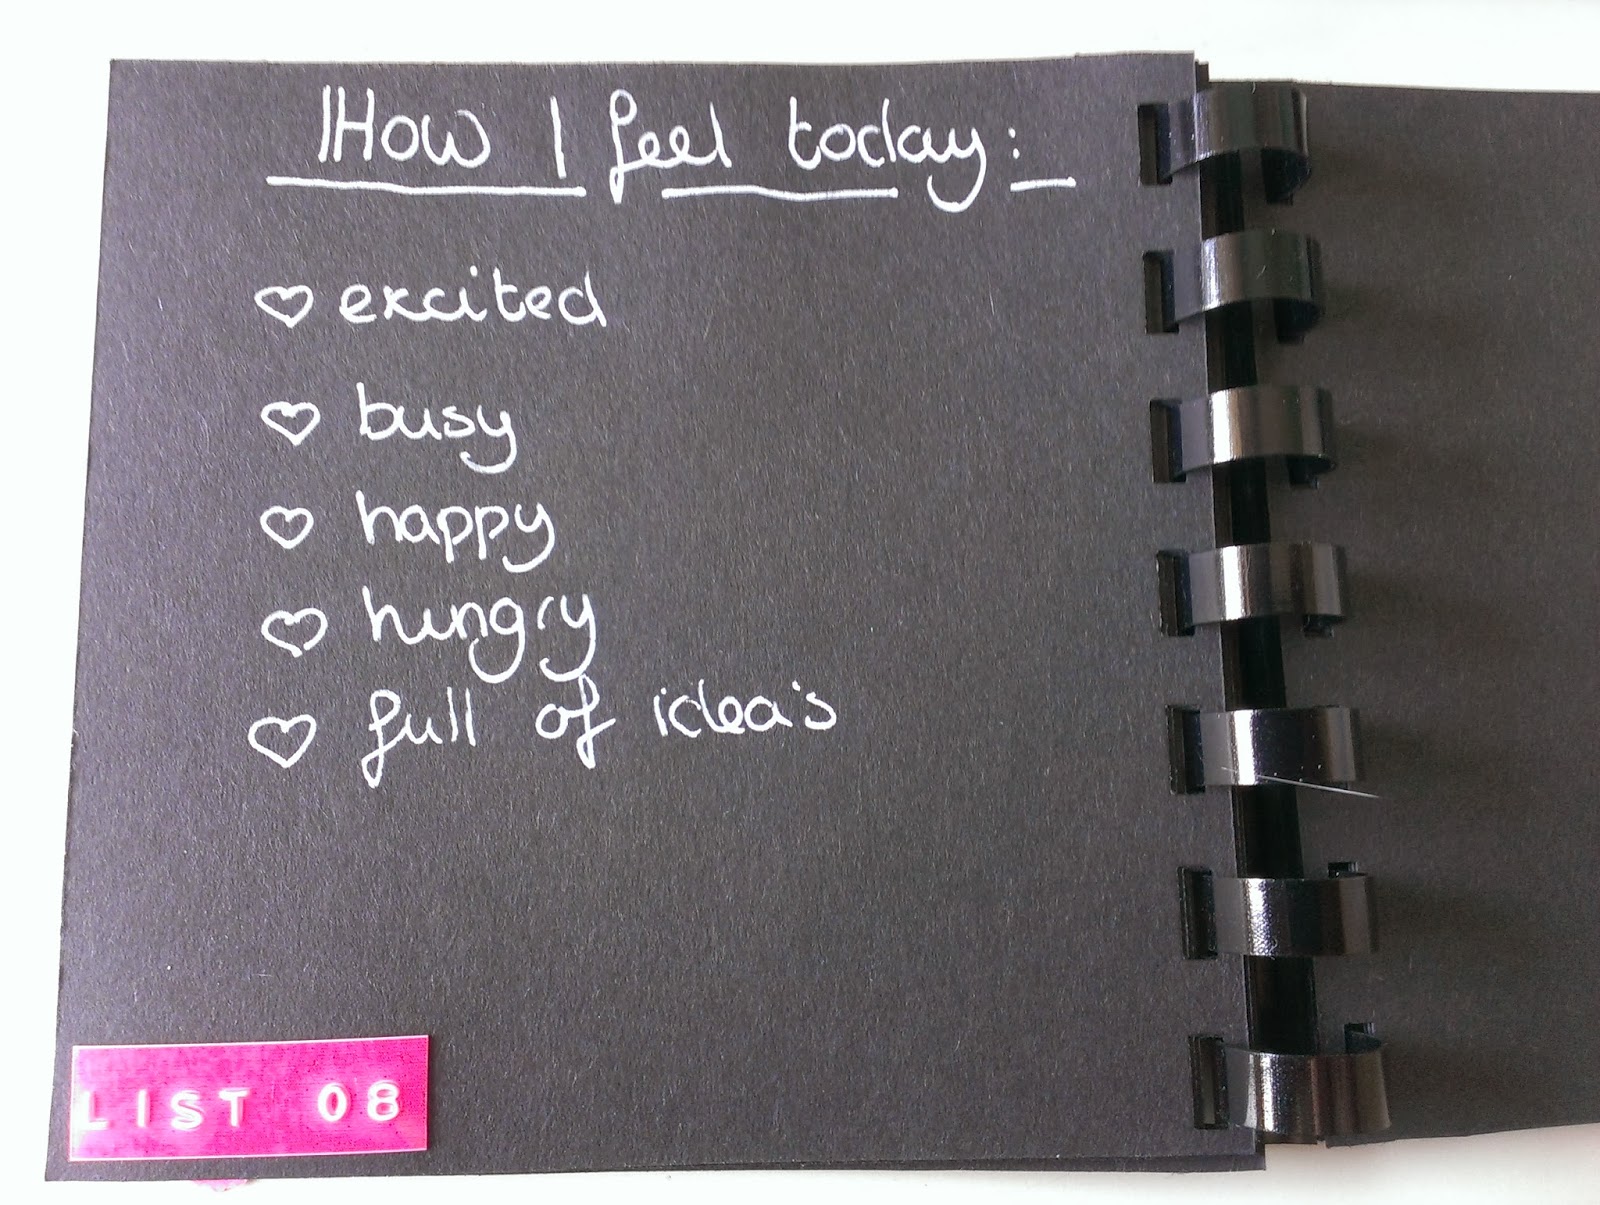 How I feel today:
♡ excited
♡ busy
♡ happy
♡ hungry
♡ full of idea's
LIST 08